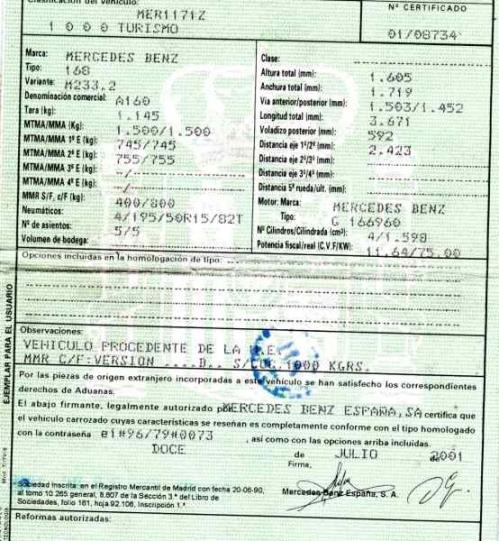 Clasificación del vehículo:
MER1171Z
1 0 0 0 TURISMO
Nº CERTIFICADO
01/08734
Marca: MERCEDES BENZ
Tipo: 168
Variante: M233.2
Denominación comercial: A160
Tara (kg): 1.145
MTMA/MMA (Kg): 1.500/1.500
MTMA/MMA 1º E (kg): 745/745
MTMA/MMA 2º E (kg): 755/755
MTMA/MMA 3º E (kg): -/-
MTMA/MMA 4º E (kg): -/-
MMR S/F, c/F (kg): 400/800
Neumáticos: 4/195/50R15/82T
Nº de asientos: 5/5
Volumen de bodega:
Clase:
Altura total (mm): 1.605
Anchura total (mm): 1.719
Via anterior/posterior (mm): 1.503/1.452
Longitud total (mm): 3.671
Voladizo posterior (mm): 592
Distancia eje 1º/2º (mm): 2.423
Distancia eje 2º/3º (mm):
Distancia eje 3º/4º (mm):
Distancia 5ª rueda/ult. (mm):
Motor: Marca: MERCEDES BENZ
Tipo: G 166960
Nº Cilindros/Cilindrada (cm³): 4/1.598
Potencia fiscal/real (C.V.F/KW): 11.64/75.00
Opciones incluidas en la homologación de tipo:
EJEMPLAR PARA EL USUARIO
Observaciones:
VEHICULO PROCEDENTE DE LA U.E.
MMR C/F:VERSION ....D.. 1000 KGRS.
Por las piezas de origen extranjero incorporadas a este vehículo se han satisfecho los correspondientes
derechos de Aduanas.
El abajo firmante, legalmente autorizado por MERCEDES BENZ ESPAÑA,SA certifica que
el vehículo carrozado cuyas características se reseñan es completamente conforme con el tipo homologado
con la contraseña e1#96/79#0073 , así como con las opciones arriba incluidas.
DOCE de JULIO de 2001
Firma,
Sociedad inscrita en el Registro Mercantil de Madrid con fecha 20-06-90,
al tomo 10.265 general, 8.807 de la Sección 3.ª del Libro de
Sociedades, folio 161, hoja 92.106, Inscripción 1.ª
Mercedes Benz España, S. A.
Reformas autorizadas: